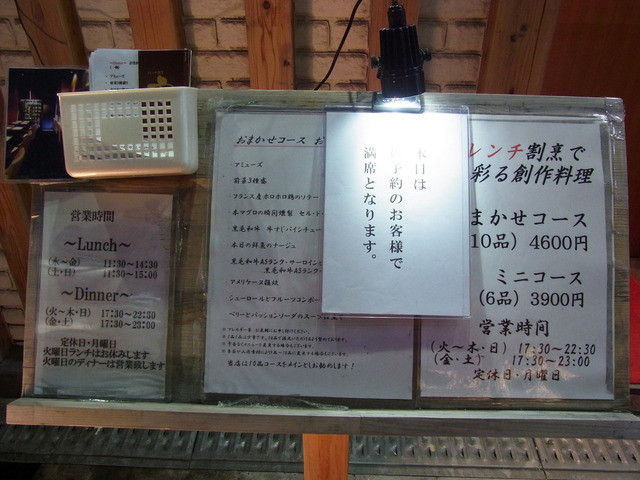 営業時間
～Lunch～
(水～金) 11:30～14:30
(土・日) 11:30～15:00
～Dinner～
(火～木・日) 17:30～22:30
(金・土) 17:30～23:00
定休日・月曜日
火曜日ランチはお休みします
火曜日のディナーは営業致します
おまかせコース お
アミューズ
前菜3種盛
フランス産ホロホロ鶏のソテー
本マグロの瞬間燻製 セル・ド
黒毛和牛 牛すじパインチュー
本日の鮮魚のナージュ
黒毛和牛A5ランク・サーロイン
黒毛和牛A5ラン
アメリケーヌ雑炊
シェーロールとフルーツコンポー
当店は10品コースをメインとしお勧めします！
本日は
予約のお客様で
満席となります。
レンチ割烹で
彩る創作料理
まかせコース
10品) 4600円
ミニコース
(6品) 3900円
営業時間
(火～木・日) 17:30～22:30
(金・土) 17:30～23:00
定休日・月曜日